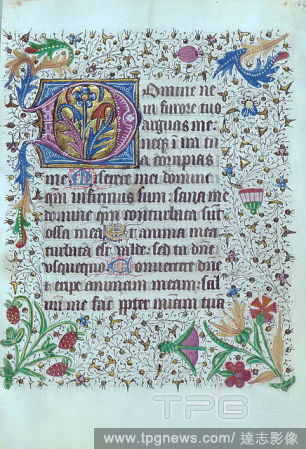 Domine ne
in furore tuo
arguas me:
neq; i ira tu
a corripias
me Miserere mei domine
qm infirmus sum: sana me
domine qm conturbata sūt
ossa mea Et anima mea
turbata est valde: sed tu dne
usquequo Convertere dne
et eripe animam meam: sal
uū me fac ppter miam tuā
TPG
www.tpgnews.com/達志影像